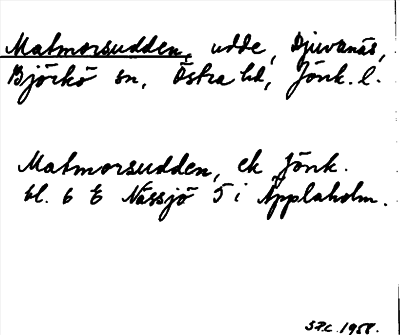 Matmorsudden, udde, Djuvanäs,
Björkö sn, Östra hd, Jönk. l.
Matmorsudden, ek Jönk.
bl. 6 E Nässjö 5 i Äpplaholm.
1958.